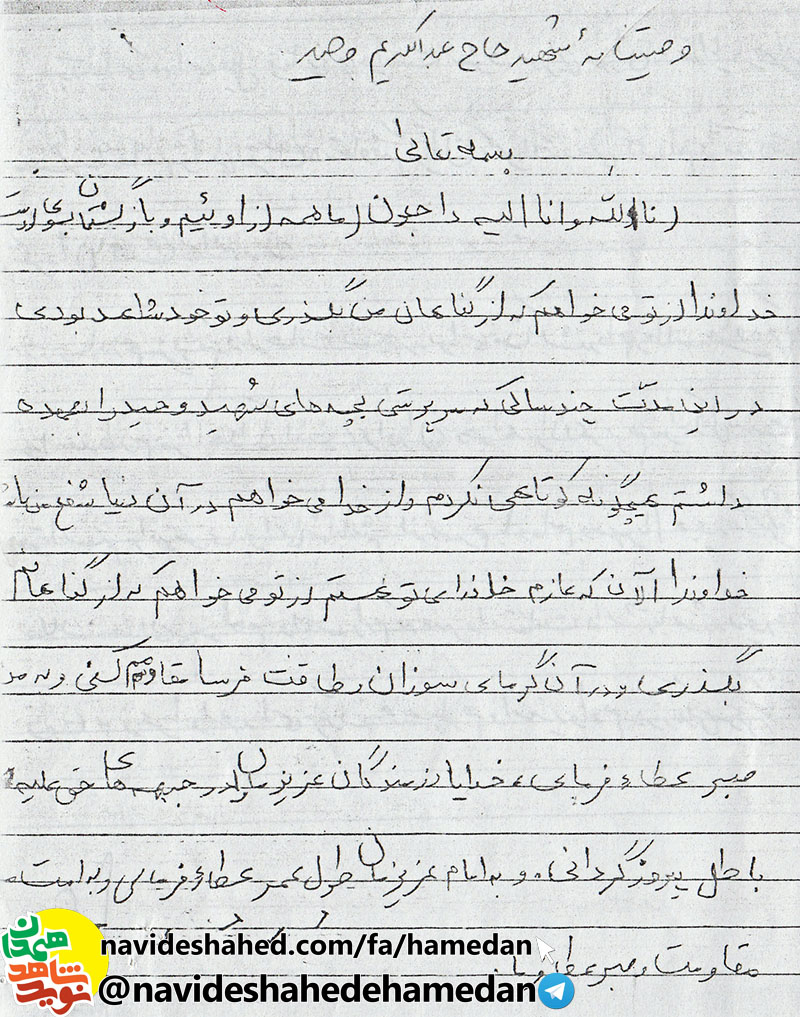 وصیتنامهٔ شهید حاج عبدالکریم وحید
بسمه تعالی
انا لله وانا الیه راجعون ما همه از اوئیم و بازگشتمان بسوی اوست
خداوندا از تو می خواهم که از گناهان من بگذری و تو خود شاهد بودی
در این مدّت چند سالی که سرپرستی بچه های شهید وحید را بعهده
داشتم هیچگونه کوتاهی نکردم و از خدا می خواهم در آن دنیا شفیع من باشد
خداوندا الآن که عازم خانه ای تو هستم از تو می خواهم که از گناهانم
بگذری و در آن گرمای سوزان و طاقت فرسا مقاومم کنی و به من
صبر عطاء فرمای، خدایا رزمندگان عزیزمان را در جبهه های حق علیه
باطل پیروز گردانی. و به امام عزیزمان طول عمر عطاء فرمائی و به امت
مقاومت و صبر عطا
navideshahed.com/fa/hamedan
@navideshahedehamedan
نوید شاهد همدان